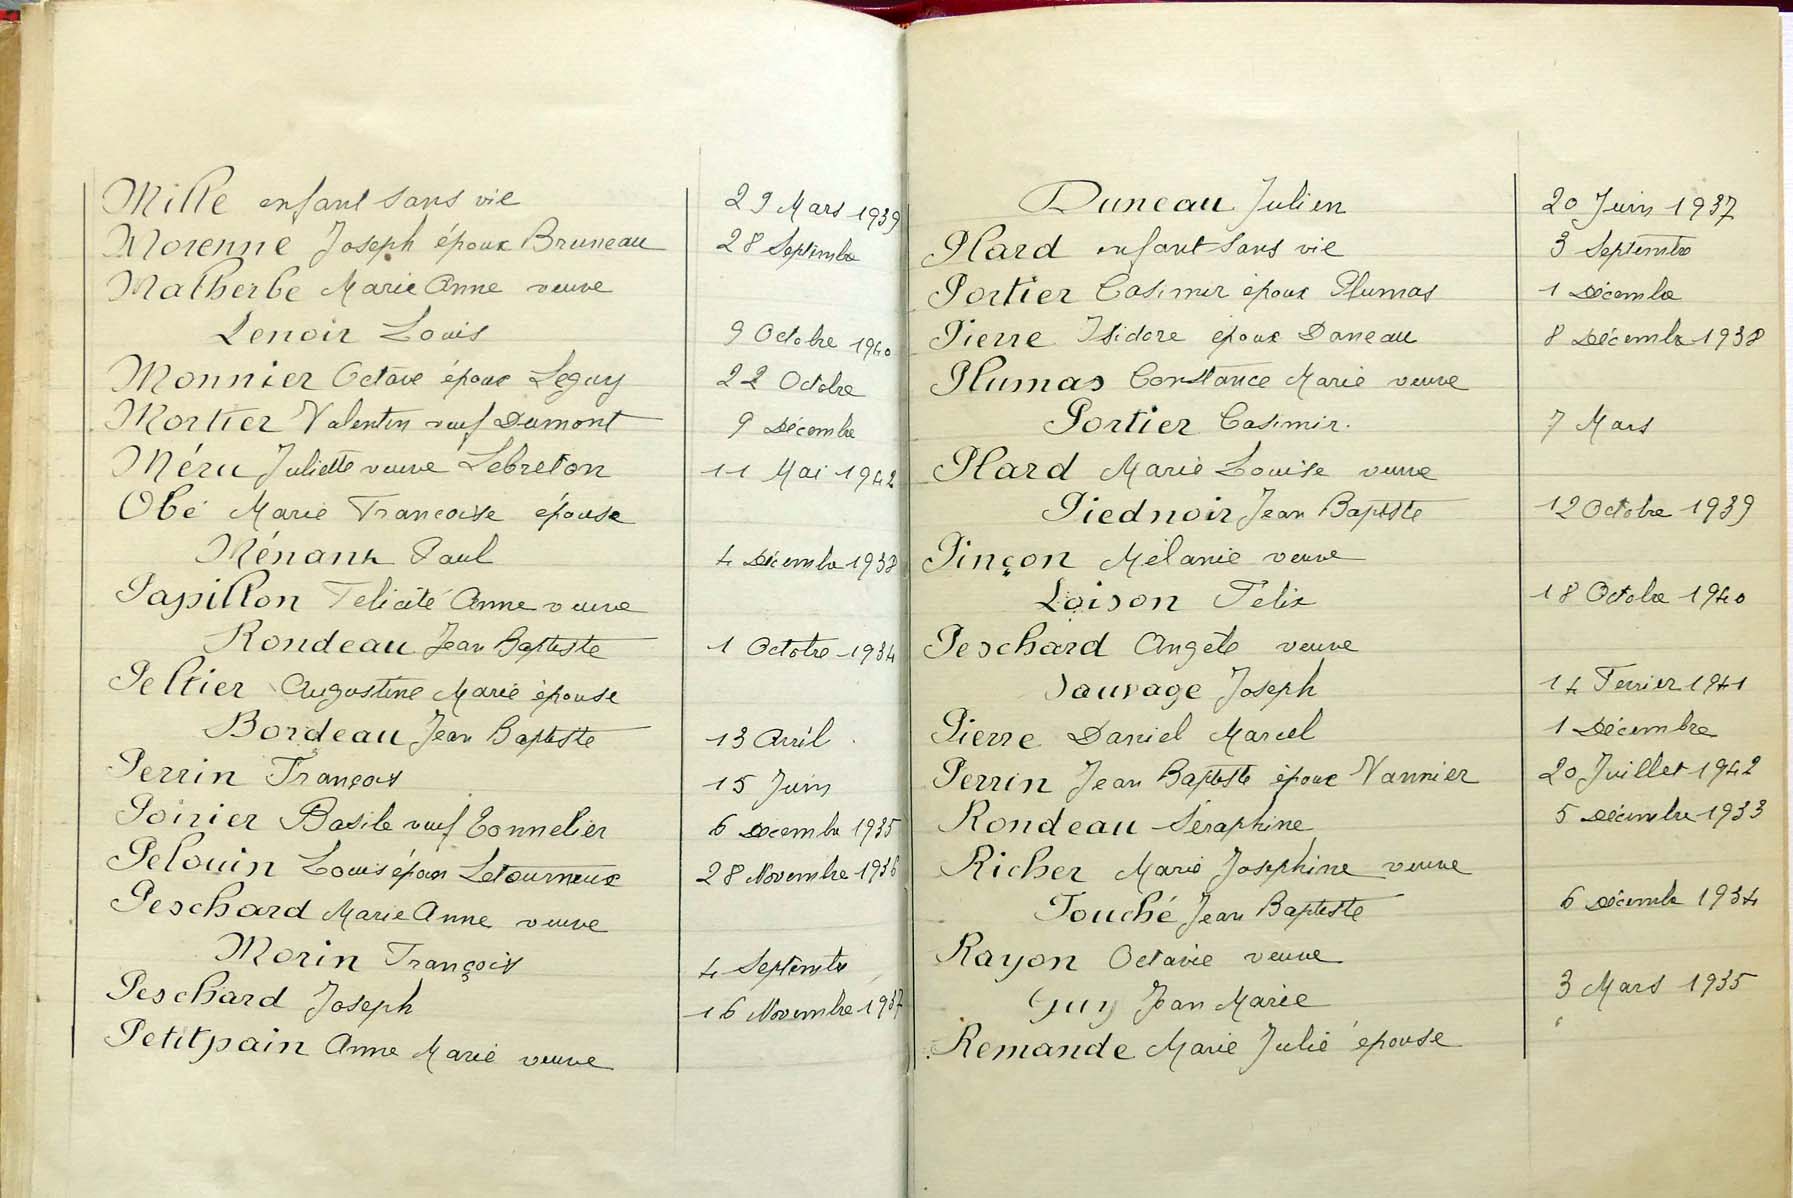 Mille enfant sans vie 29 Mars 1939
Morenne Joseph époux Bruneau 28 Septembre
Malherbe Marie Anne veuve
Lenoir Louis 9 Octobre 1940
Monnier Octave époux Leguy 22 Octobre
Mortier Valentin veuf Dumont 9 Décembre
Méru Juliette veuve Lebreton 11 Mai 1942
Obé Marie Françoise épouse
Ménank Paul 4 Décembre 1938
Papillon Felicité Anne veuve
Rondeau Jean Baptiste 1 Octobre 1934
Peltier Augustine Marie épouse
Bordeau Jean Baptiste 13 Avril
Perrin François 15 Juin
Poirier Basile veuf Tonnelier 6 Décembre 1935
Pelouin Louis époux Letourneux 28 Novembre 1936
Peschard Marie Anne veuve
Morin François 4 Septembre
Peschard Joseph 16 Novembre 1937
Petitpain Anne Marie veuve
Duneau Julien 20 Juin 1937
Plard enfant sans vie 3 Septembre
Portier Casimir époux Plumas 1 Décembre
Pierre Isidore époux Daneau 8 Décembre 1938
Plumas Constance Marie veuve
Portier Casimir. 7 Mars
Plard Marie Louise veuve
Piednoir Jean Baptiste 12 Octobre 1939
Pinçon Mélanie veuve
Loison Felix 18 Octobre 1940
Peschard Angèle veuve
Sauvage Joseph 14 Fevrier 1941
Pierre Daniel Marcel 1 Décembre
Perrin Jean Baptiste époux Vannier 20 Juillet 1942
Rondeau Séraphine 5 Décembre 1933
Richer Marie Joséphine veuve
Touché Jean Baptiste 6 Décembre 1934
Rayon Octavie veuve
Guy Jean Marie 3 Mars 1935
Remande Marie Julie épouse